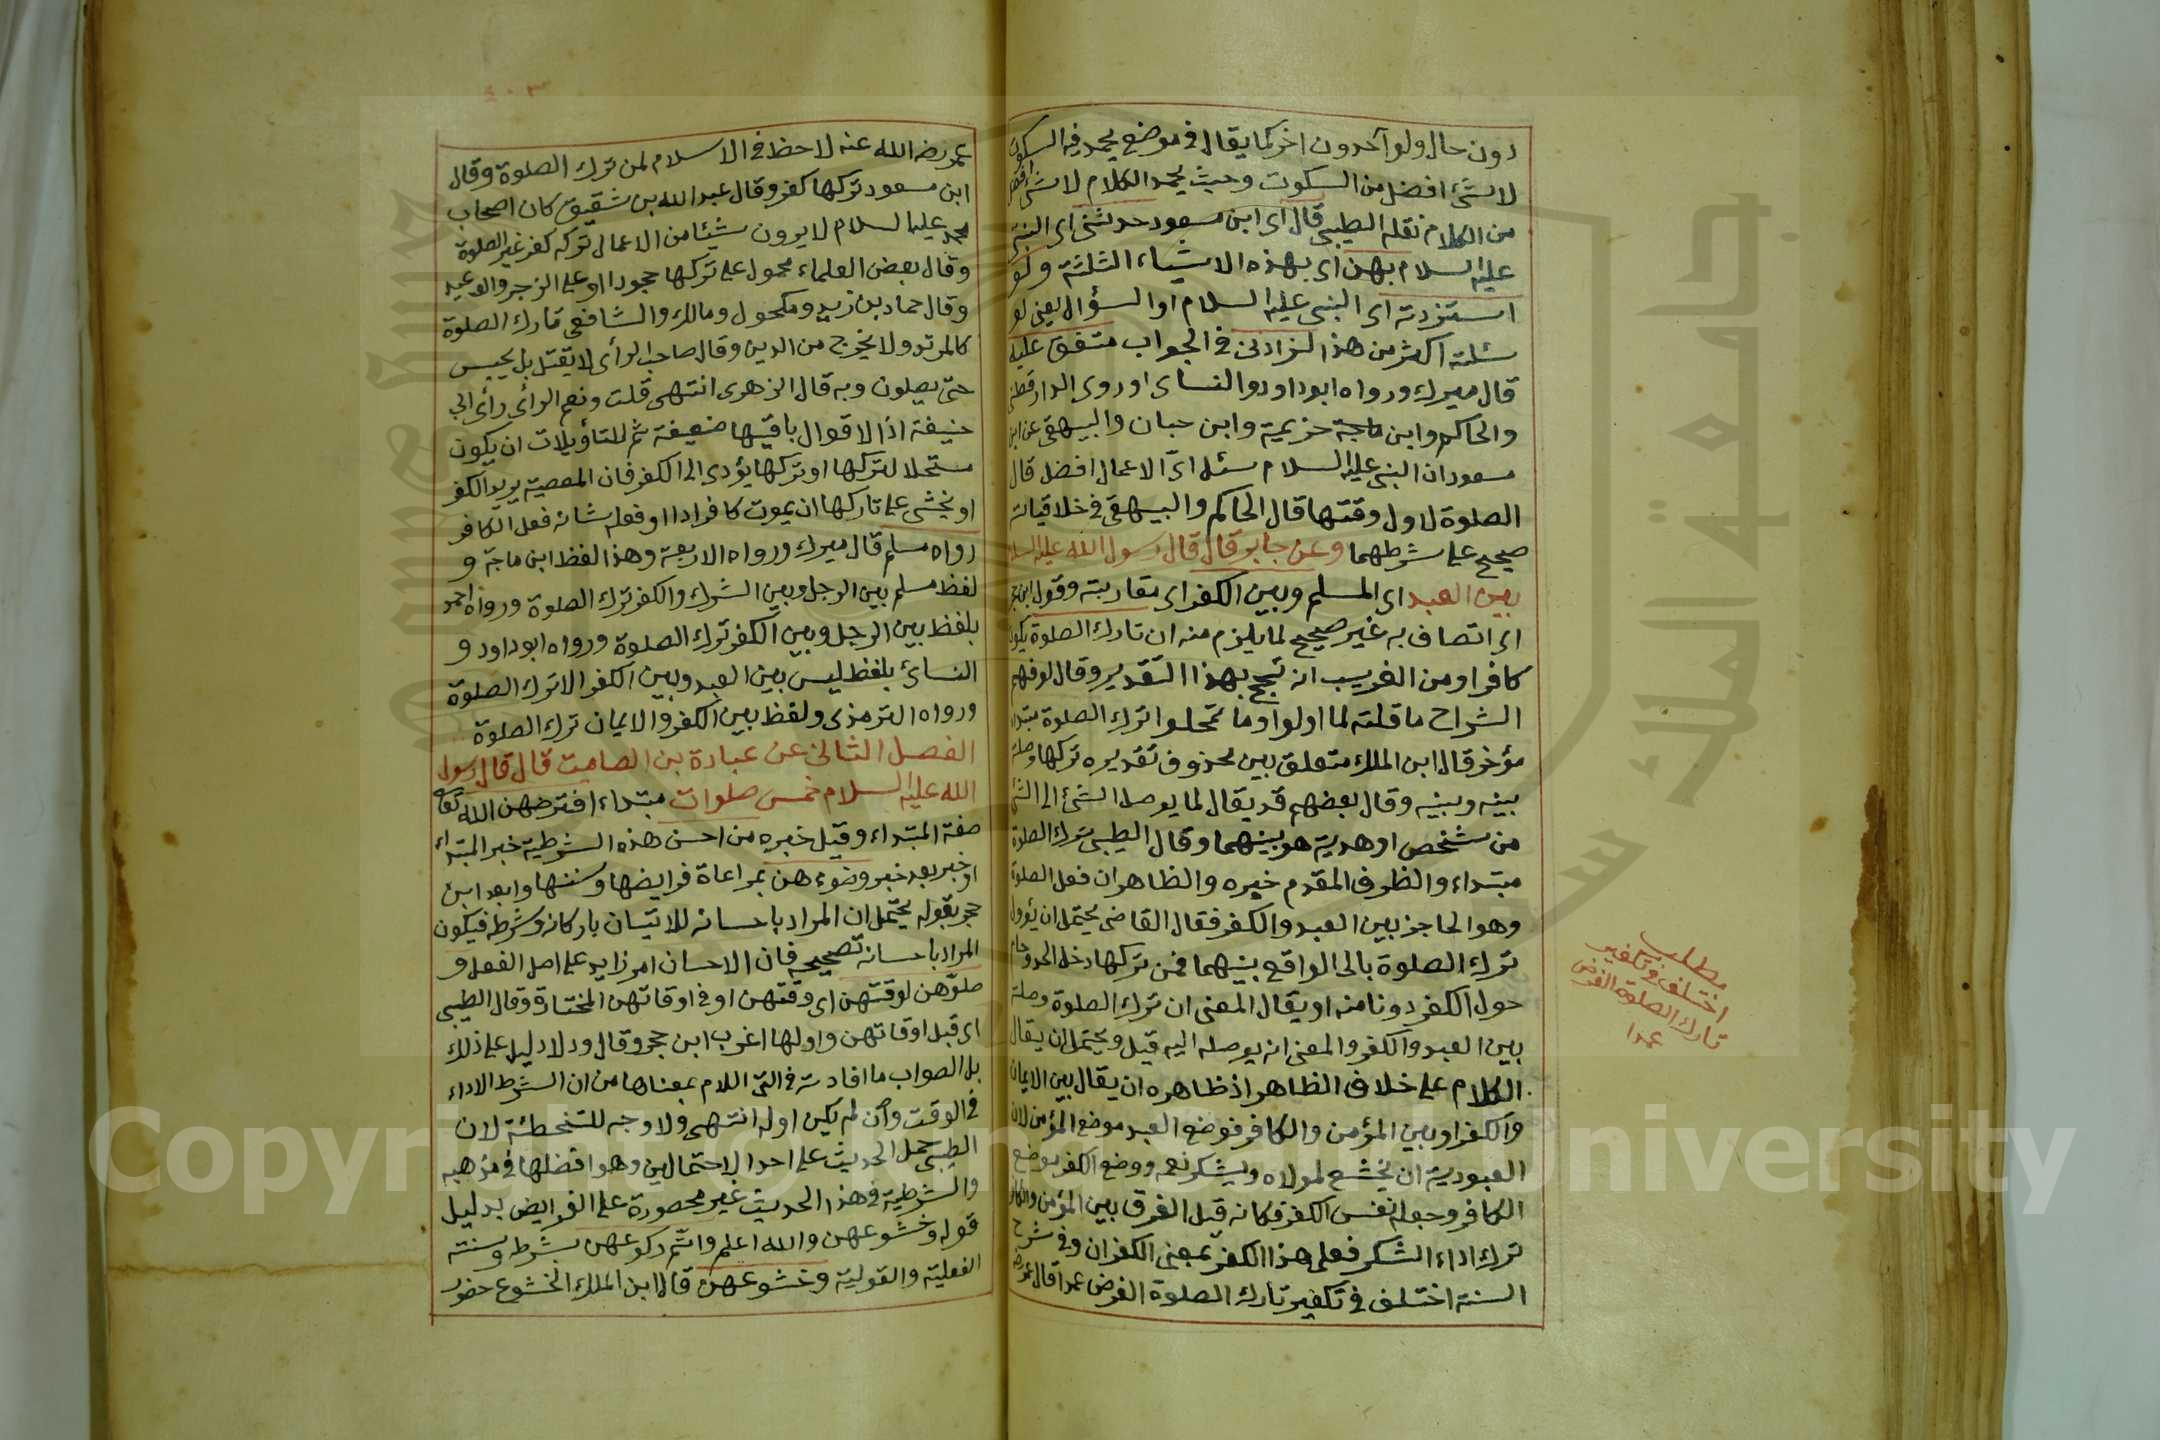 دون حال ولو آخر دون اخر كما يقال في موضع يحمد فيه السكوت
لا شئ افضل من السكوت وحيث يحمد الكلام لا شئ افضل
من الكلام نقله الطيبي قال اى ابن مسعود حدثني اى النبي
عليه السلام بهن اى بهذه الاشياء الثلثة ولو
استزدته اى النبي عليه السلام او السؤال يعني لو
سئلته اكثر من هذا لزادني في الجواب متفق عليه
قال ميرك ورواه ابو داود والنساى اوروى الدارقطني
والحاكم وابن ماجة حزيمية وابن حبان والبيهقى عن ابن
مسعود ان النبي عليه السلام سئل اىّ الاعمال افضل قال
الصلوة لاول وقتها قال الحاكم والبيهقى في خلافياته
صحيح على شرطهما وعن جابر قال قال رسول الله عليه السلام
بين العبد اى المسلم وبين الكفر اى مقاربته وقول ابن حجر
اى اتصاف به غير صحيح لما يلزم منه ان تارك الصلوة يكون
كافرا ومن الغريب انه تبجح بهذا التقدير وقال لو فهم
الشراح ما قلته لما اولوا وما تمحلوا ترك الصلوة مبتداء
مؤخر قال ابن الملك متعلق بين محذوف تقديره تركها وصلة
بينه وبينه وقال بعضهم قد يقال لما يوصل الشئ الى الشئ
من شخص او هدية هو بينهما وقال الطيبي ترك الصلوة
مبتداء والظرف المقدم خبره والظاهر ان فعل الصلوة
وهو الحاجز بين العبد والكفر فقال القاضى يحتمل ان يؤول
ترك الصلوة بالحد الواقع بينهما فمن تركها دخل الحد وحام
حول الكفر ودنا منه او يقال المعنى ان ترك الصلوة وصلة
بين العبد والكفر والمعنى انه يوصله اليه قيل ويحتمل ان يقال
الكلام على خلاف الظاهر اذ ظاهره ان يقال بين الايمان
والكفر او بين المؤمن والكافر فوضع العبد موضع المؤمن لان
العبودية ان يخشع لمولاه ويشكر نعمه ووضع الكفر موضع
الكافر وجعله نفس الكفر فكانه قيل الفرق بين المؤمن والكافر
ترك اداء الشكر فعلى هذا الكفر بمعنى الكفران وفي شرح
السنة اختلف في تكفير تارك الصلوة الفرض عمدا قال عمر
مطلب
اختلف في تكفير
تارك الصلوة الفرض
عمدا
٤٠٣
عمر رضه الله عنه لا حظ في الاسلام لمن ترك الصلوة وقال
ابن مسعود تركها كفر وقال عبد الله بن شقيق كان اصحاب
محمد عليه السلام لا يرون شيئا من الاعمال تركه كفر غير الصلوة
وقال بعض العلماء محمول على تركها جحودا او على الزجر والوعيد
وقال حماد بن زيد ومكحول ومالك والشافعى تارك الصلوة
كالمرتد ولا يخرج من الدين وقال صاحب الرأى لا يقتل بل يحبس
حتى يصلون وبه قال الزهرى انتهى قلت ونعم الرأى رأى ابي
حنيفة اذ الاقوال باقيها ضعيفة ثم للتأويلات ان يكون
مستحلا لتركها او تركها يؤدى الى الكفر فان المعصية بريد الكفر
او يخشى على تاركها ان يموت كافرا او فعله شانه فعل الكافر
رواه مسلم قال ميرك ورواه الاربعة وهذا لفظ ابن ماجة و
لفظ مسلم بين الرجل وبين الشرك والكفر ترك الصلوة ورواه احمد
بلفظ بين الرجل وبين الكفر ترك الصلوة ورواه ابو داود و
النسائ بلفظ ليس بين العبد وبين الكفر الا ترك الصلوة
ورواه الترمذى ولفظ بين الكفر والايمان ترك الصلوة
الفصل الثانى عن عبادة بن الصامت قال قال رسول
الله عليه السلام خمس صلوات مبتداء افترضهن الله تعالى
صفة المبتداء وقيل خبره من احسن هذه الشرطية خبر المبتداء
او خبر بعد خبر وضوءهن بمراعاة فرايضها وسننها وابعد ابن
حجر بقوله يحتمل ان المراد باحسانه للاتيان باركانه وشرطه فيكون
المراد باحسانه تصحيحه فان الاحسان امر زايد على اصل الفعل و
صلوهن لوقتهن اى وقتهن او في اوقاتهن المختارة وقال الطيبى
اى قبل اوقاتهن واولها اغرب ابن حجر وقال ودلا دليل على ذلك
بل الصواب ما افادته في التى اللام بمعناها من ان الشرط الاداء
في الوقت وان لم يكن اوله انتهى ولا وجه للتخطئة لان
الطيبى حمل الحديث على احد الاحتمالين وهو افضلها في مذهبه
والشرطية في هذا الحديث غير محصورة على الفرايض بدليل
قوله وخشوعهن والله اعلم واتم ركوعهن بشرطه وسنته
الفعلية والقولية وخشوعهن قال ابن الملك الخشوع حضور